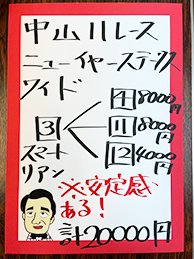 中山11レース
ニューイヤーステークス
ワイド
4 8000円
3 11 8000円
スマート 12 4000円
リアン
※安定感
ある!
計20000円